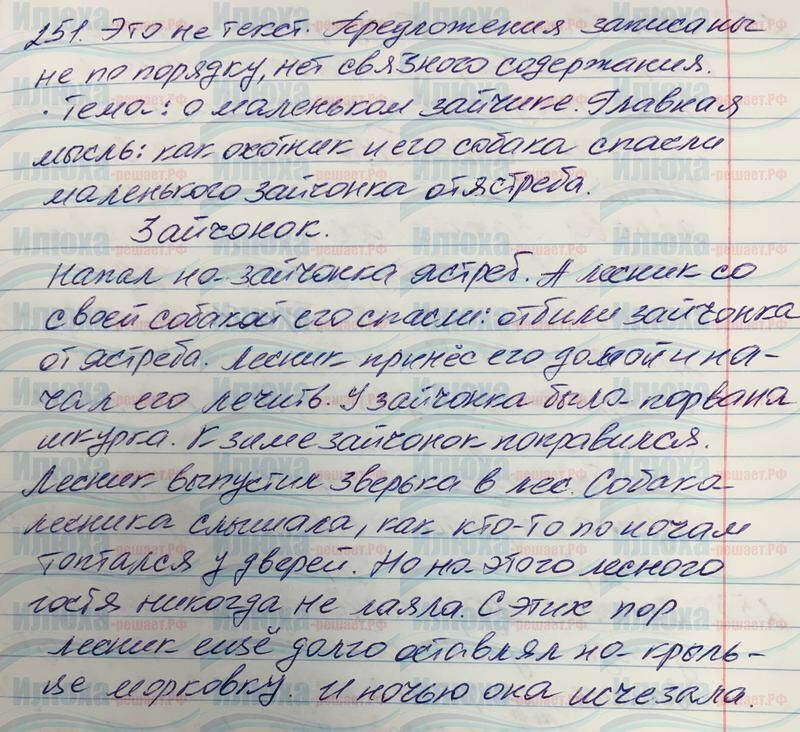 251. Это не текст. Предложения записаны
не по порядку, нет связного содержания.
Тема: о маленьком зайчике. Главная
мысль: как охотник и его собака спасли
маленького зайчонка от ястреба.
Зайчонок.
Напал на зайчонка ястреб. А лесник со
своей собакой его спасли: отбили зайчонка
от ястреба. Лесник принёс его домой и на-
чал его лечить. У зайчонка была порвана
шкурка. К зиме зайчонок поправился.
Лесник выпустил зверька в лес. Собака
лесника слышала, как кто-то по ночам
топтался у дверей. Но на этого лесного
гостя никогда не лаяла. С этих пор
лесник ещё долго оставлял на крыль-
це морковку. И ночью она исчезала.
Илюха-решает.РФ